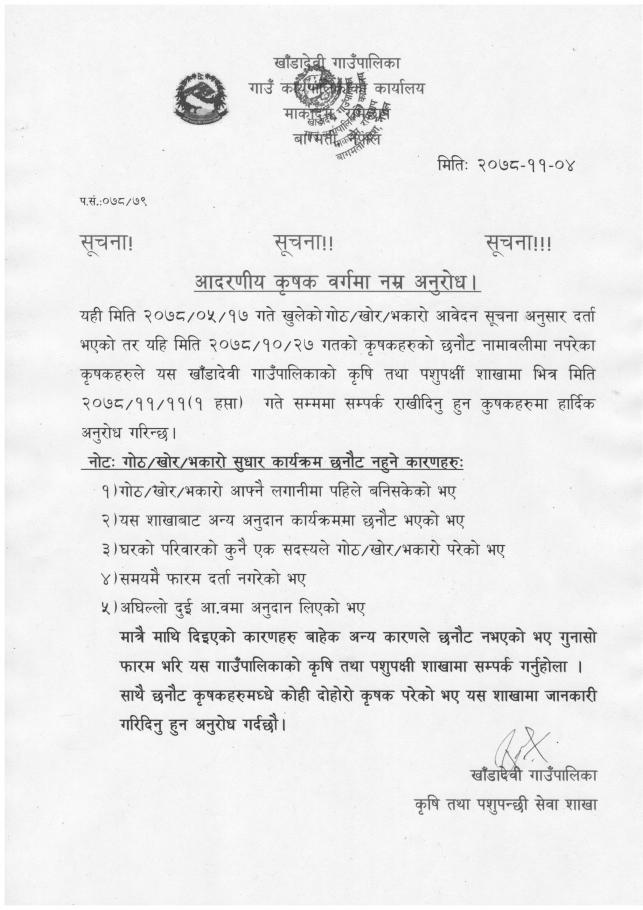 खाँडादेवी गाउँपालिका
गाउँ कार्यपालिकाको कार्यालय
माकादुम, रामेछाप
बागमती, नेपाल
मितिः २०७८-११-०४
प.सं.:०७८/७९
सूचना! सूचना!! सूचना!!!
आदरणीय कृषक वर्गमा नम्र अनुरोध।
यही मिति २०७८/०५/१७ गते खुलेको गोठ/खोर/भकारो आवेदन सूचना अनुसार दर्ता
भएको तर यहि मिति २०७८/१०/२७ गतको कृषकहरुको छनौट नामावलीमा नपरेका
कृषकहरुले यस खाँडादेवी गाउँपालिकाको कृषि तथा पशुपक्षीं शाखामा भित्र मिति
२०७८/११/११(१ हप्ता) गते सम्ममा सम्पर्क राखीदिनु हुन कुषकहरुमा हार्दिक
अनुरोध गरिन्छ।
नोटः गोठ/खोर/भकारो सुधार कार्यक्रम छनौट नहुने कारणहरुः
१)गोठ/खोर/भकारो आफ्नै लगानीमा पहिले बनिसकेको भए
२)यस शाखाबाट अन्य अनुदान कार्यक्रममा छनौट भएको भए
३)घरको परिवारको कुनै एक सदस्यले गोठ/खोर/भकारो परेको भए
४)समयमै फारम दर्ता नगरेको भए
५)अघिल्लो दुई आ.वमा अनुदान लिएको भए
मात्रै माथि दिइएको कारणहरु बाहेक अन्य कारणले छनौट नभएको भए गुनासो
फारम भरि यस गाउँपालिकाको कृषि तथा पशुपक्षी शाखामा सम्पर्क गर्नुहोला ।
साथै छनौट कृषकहरुमध्धे कोही दोहोरो कृषक परेको भए यस शाखामा जानकारी
गरिदिनु हुन अनुरोध गर्दछौ।
खाँडादेवी गाउँपालिका
कृषि तथा पशुपन्छी सेवा शाखा